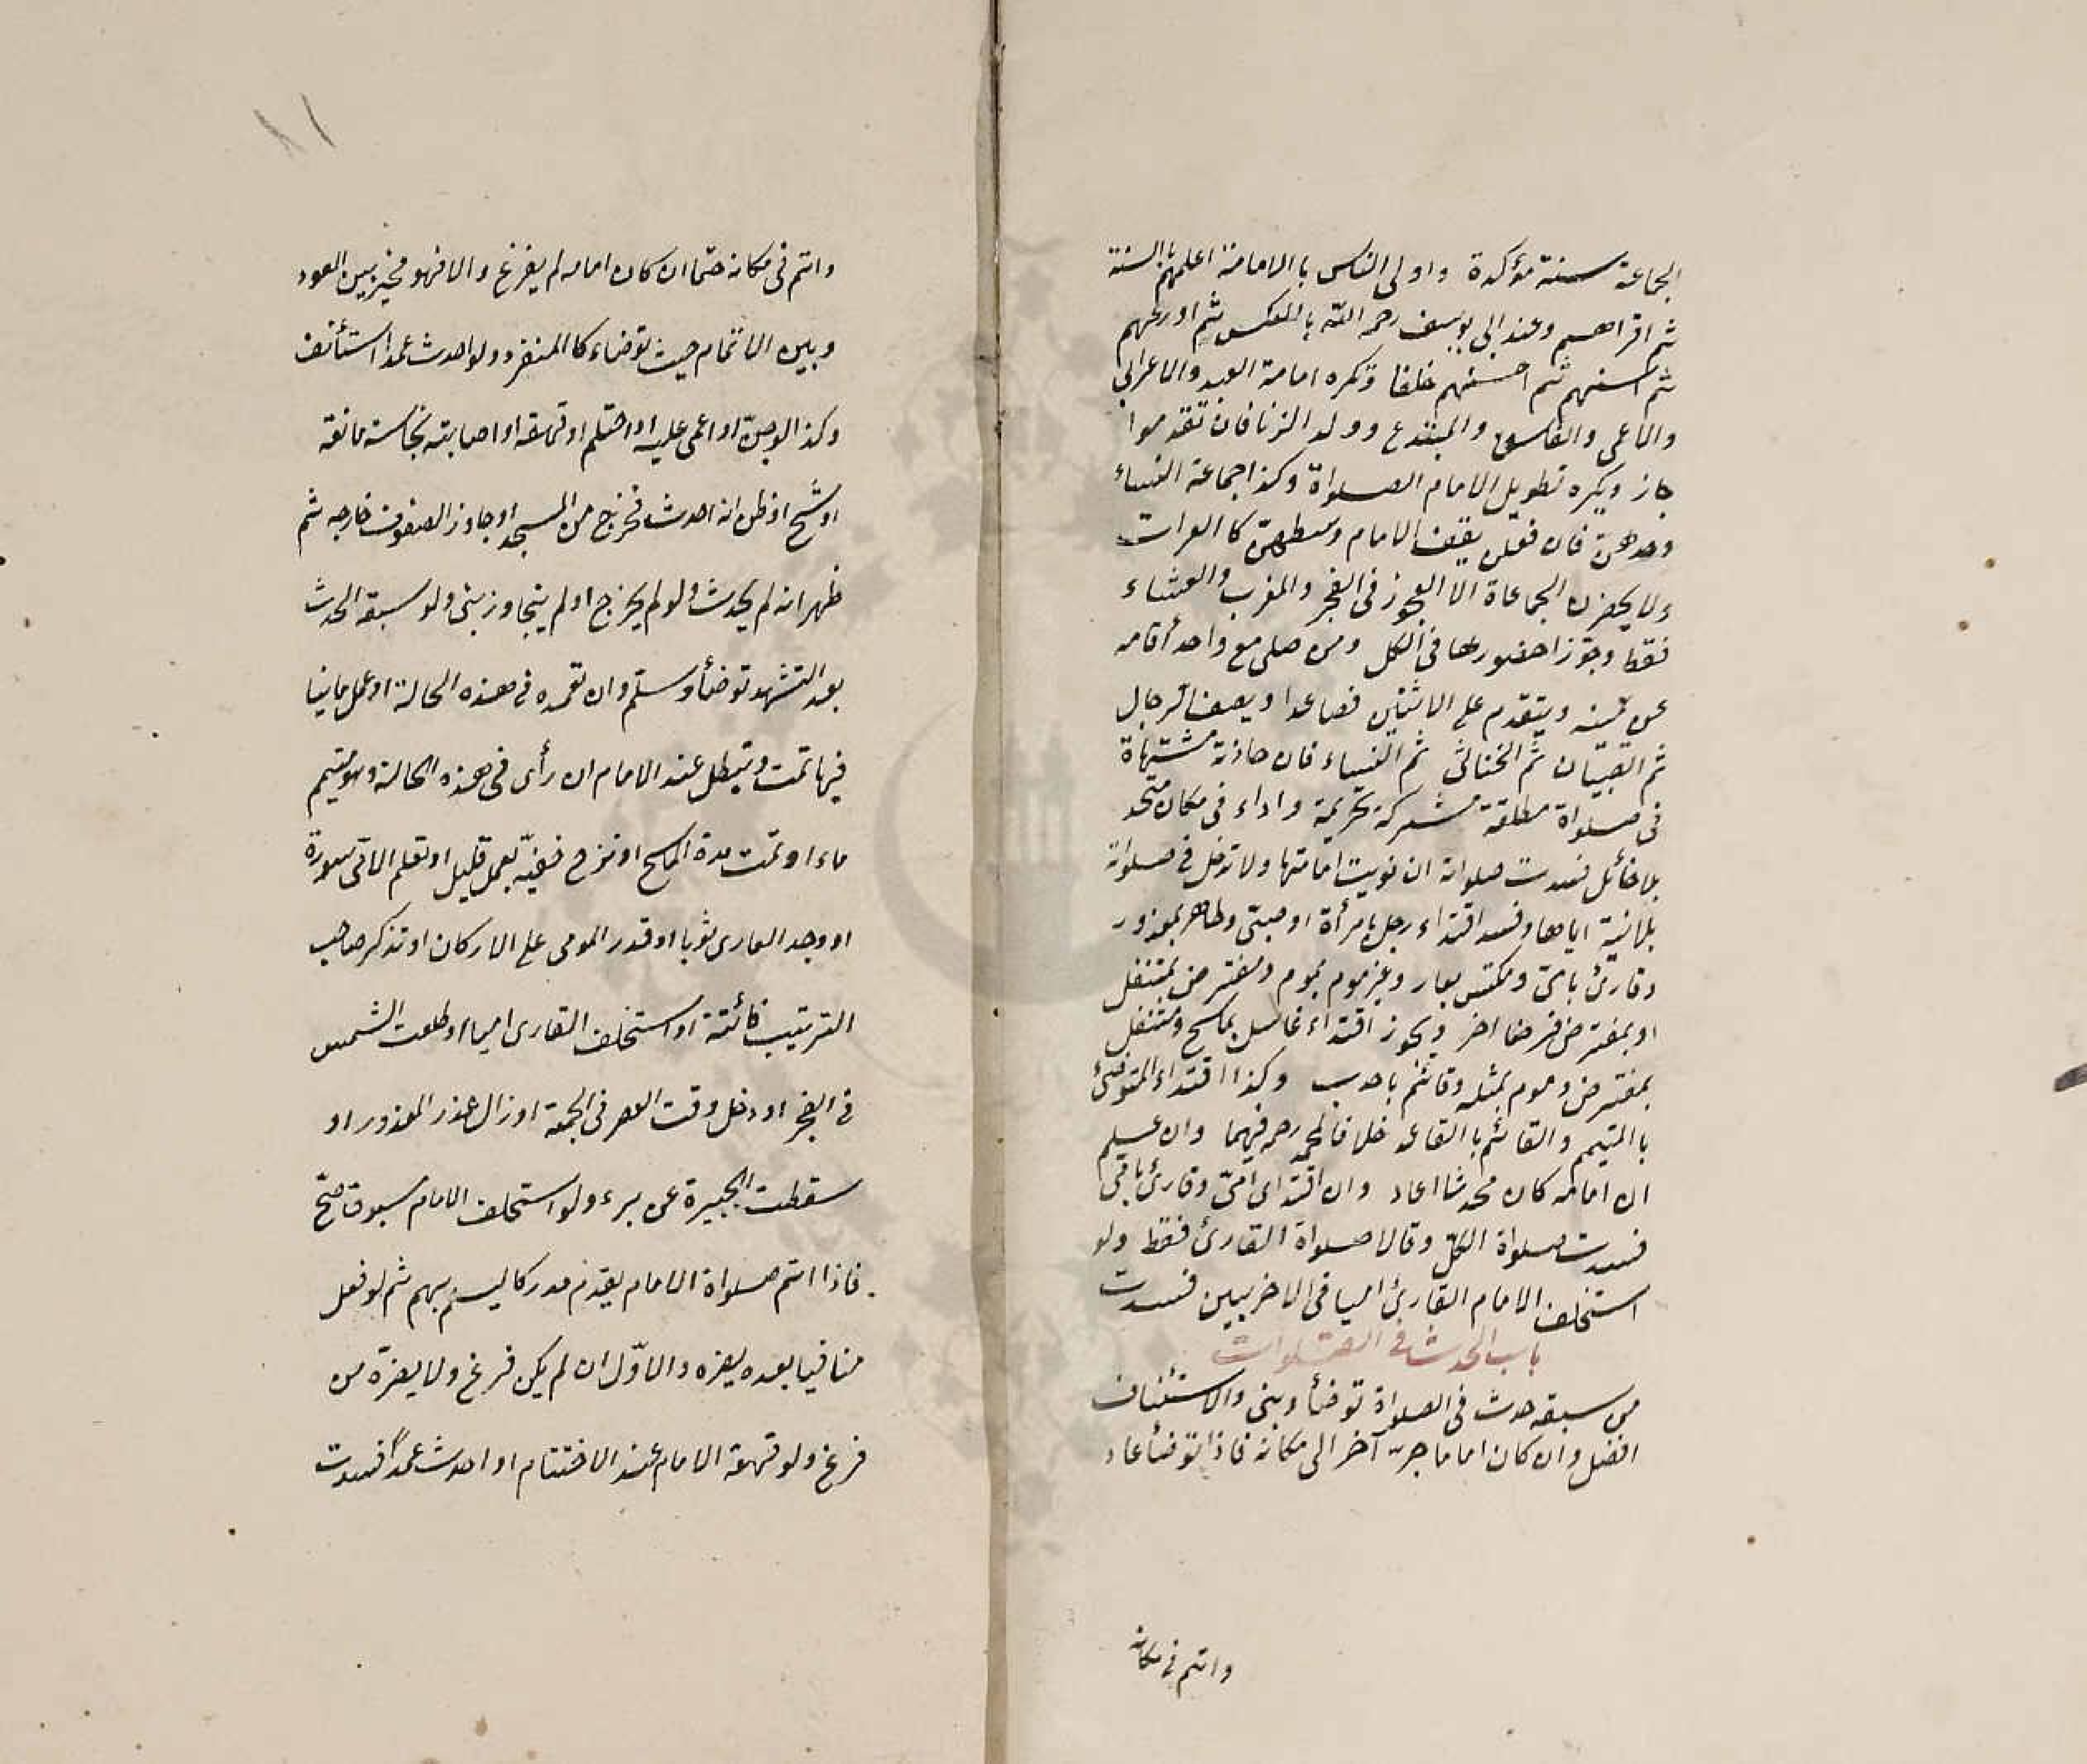 الجماعة سنة مؤكدة واولى الناس با الامامة اعلمهم با السنة
ثم اقراهم وعند ابى يوسف رحمه الله با العكس ثم اورعهم
ثم اسنهم ثم احسنهم خلقا وتكره امامة العبد والاعرابي
والاعمى والفاسق والمبتدع وولد الزنا فان تقدموا
جاز ويكره تطويل الامام الصلواة وكذا جماعة النساء
وحدهن فان فعلن يقف الامام وسطهن كا العرات
ولا يحضرن الجماعاة الا العجوز فى الفجر والمغرب والعشاء
فقط وجوزا حضورها فى الكل ومن صلى مع واحد أقامه
عن يمينه ويتقدم على الاثنين فصاعدا ويصف الرجال
ثم الصبيان ثم الخناثى ثم النساء فان حاذته مشتهاة
فى صلواة مطلقة مشتركة تحريمة واداء فى مكان متحد
بلا حائل فسدت صلواته ان نويت امامتها ولا تدخل فى صلواته
بلا نية اياها وفسد اقتداء رجل بامرأة او صبىّ وطاهر بمعذور
وقارئ بامىّ ومكتس بعار وغير موم بموم ومفترض بمتنفل
او بمفترض فرضا اخر ويجوز اقتداء غاسل بماسح ومتنفل
بمفترض وموم بمثله وقائم باحدب وكذا اقتداء المتوضئ
با المتيمم والقائم با القاعد خلافا لمحمد رحمه فيهما وان علم
ان امامه كان محدثا اعاد وان اقتدى امىّ وقارئ بامى
فسدت صلواة الكل وقالا صلواة القارئ فقط ولو
استخلف الامام القارئ اميا فى الاخريين فسدت
باب الحدث فى الصلوات
من سبقه حدث فى الصلواة توضأ وبنى والاستئناف
افضل وان كان اماما جرّ آخر الى مكانه فاذا توضأ عاد
واتم فى مكانه
واتم فى مكانه حتما ان كان امامه لم يفرغ والا فهو مخير بين العود
وبين الاتمام حيث توضاء كا المنفرد ولو احدث عمدا استأنف
وكذا لو جنّ او اغمى عليه او احتلم او قهقه او اصابته نجاسة مانعة
او شج او ظن انه احدث فخرج من المسجد او جاوز الصفوف خارجه ثم
ظهر انه لم يحدث ولو لم يخرج او لم يتجاوز بنى ولو سبقه الحدث
بعد التشهد توضأ وسلم وان تعمده فى هذه الحالة او عمل ما ينا
فيها تمت وتبطل عند الامام ان رأى فى هذه الحالة وهو متيمم
ماء او تمت مدة الماسح او نزع خفيّه بعمل قليل او تعلم الامى سورة
او وجد العارى ثوبا او قدر المومى على الاركان او تذكر صاحب
الترتيب فائتة او استخلف القارى اميا او طلعت الشمس
فى الفجر او دخل وقت العصر فى الجمعة او زال عذر المعذور او
سقطت الجبيرة عن برء ولو استخلف الامام مسبوقا صحّ
فاذا اتم صلواة الامام يقدم مدركا ليسلم بهم ثم لو فعل
منافيا بعده يضره والاوّل ان لم يكن فرغ ولا يضرّه من
فرغ ولو قهقه الامام عند الاختتام او احدث عمدا فسدت